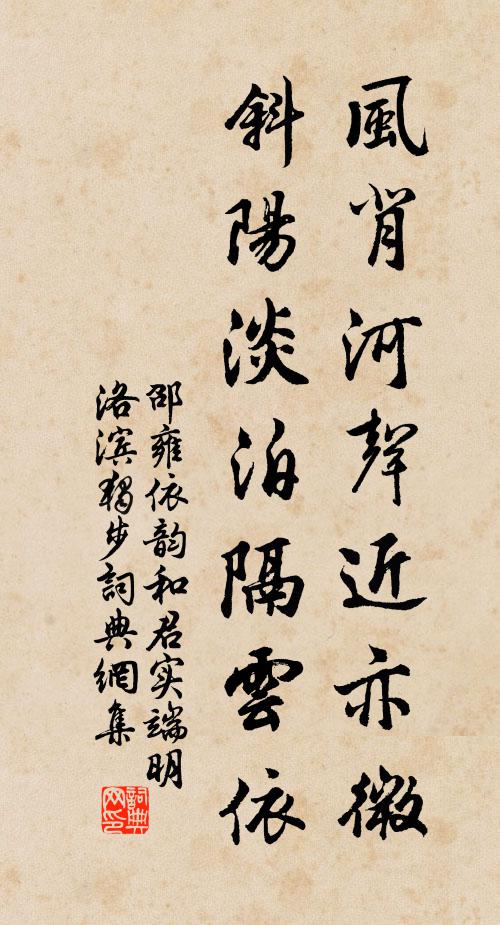 風背河聲近亦微
斜陽淡泊隔雲依
邵雍依韵和君实端明
洛滨獨步詞典網集
詞典网印